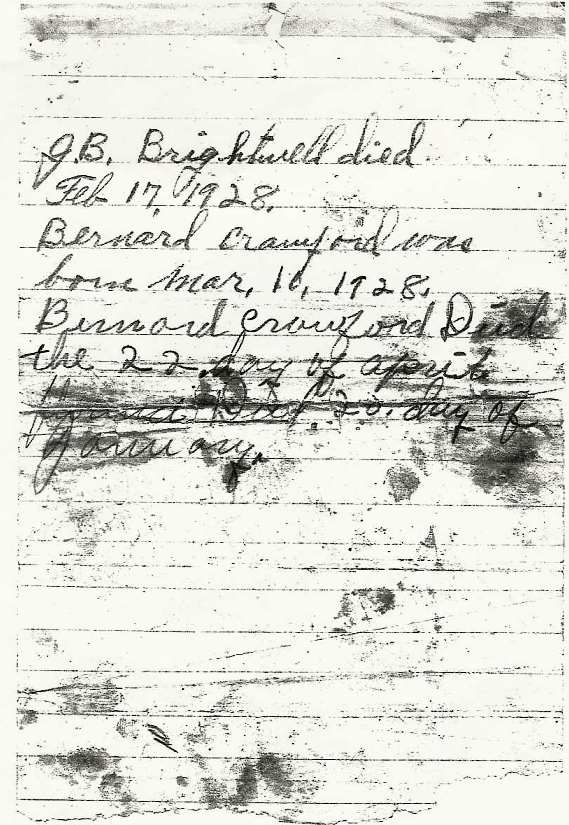 J.B. Brightwell died
Feb 17, 1928.
Bernard Crawford was
born Mar, 10, 1928.
Bernard Crawford Died
the 22 day of april
Died. 20. day of
January.